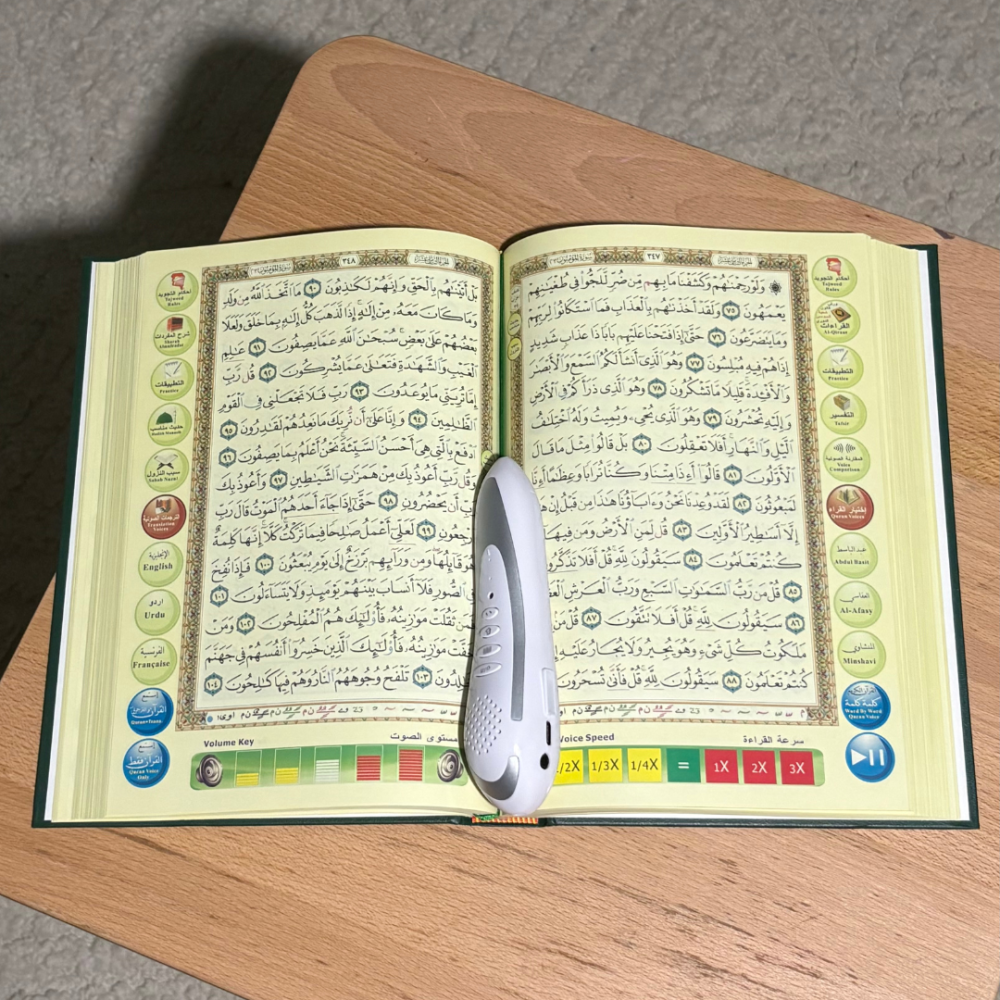 ٣٤٧
۞ وَلَوْ رَحِمْنَٰهُمْ وَكَشَفْنَا مَا بِهِم مِّن ضُرٍّ لَّلَجُّوا۟ فِى طُغْيَٰنِهِمْ
يَعْمَهُونَ ٧٥ وَلَقَدْ أَخَذْنَٰهُم بِٱلْعَذَابِ فَمَا ٱسْتَكَانُوا۟ لِرَبِّهِمْ
وَمَا يَتَضَرَّعُونَ ٧٦ حَتَّىٰٓ إِذَا فَتَحْنَا عَلَيْهِم بَابًا ذَا عَذَابٍ شَدِيدٍ
إِذَا هُمْ فِيهِ مُبْلِسُونَ ٧٧ وَهُوَ ٱلَّذِىٓ أَنشَأَ لَكُمُ ٱلسَّمْعَ وَٱلْأَبْصَٰرَ
وَٱلْأَفْـِٔدَةَ قَلِيلًا مَّا تَشْكُرُونَ ٧٨ وَهُوَ ٱلَّذِى ذَرَأَكُمْ فِى ٱلْأَرْضِ
وَإِلَيْهِ تُحْشَرُونَ ٧٩ وَهُوَ ٱلَّذِى يُحْىِۦ وَيُمِيتُ وَلَهُ ٱخْتِلَٰفُ
ٱلَّيْلِ وَٱلنَّهَارِ أَفَلَا تَعْقِلُونَ ٨٠ بَلْ قَالُوا۟ مِثْلَ مَا قَالَ
ٱلْأَوَّلُونَ ٨١ قَالُوٓا۟ أَءِذَا مِتْنَا وَكُنَّا تُرَابًا وَعِظَٰمًا أَءِنَّا
لَمَبْعُوثُونَ ٨٢ لَقَدْ وُعِدْنَا نَحْنُ وَءَابَآؤُنَا هَٰذَا مِن قَبْلُ
إِلَّآ أَسَٰطِيرُ ٱلْأَوَّلِينَ ٨٣ قُل لِّمَنِ ٱلْأَرْضُ وَمَن فِيهَآ
كُنتُمْ تَعْلَمُونَ ٨٤ سَيَقُولُونَ لِلَّهِ قُلْ أَفَلَا تَذَكَّرُونَ
٨٥ قُلْ مَن رَّبُّ ٱلسَّمَٰوَٰتِ ٱلسَّبْعِ وَرَبُّ ٱلْعَرْشِ
٨٦ سَيَقُولُونَ لِلَّهِ قُلْ أَفَلَا تَتَّقُونَ ٨٧ قُلْ مَنۢ
مَلَكُوتُ كُلِّ شَىْءٍ وَهُوَ يُجِيرُ وَلَا يُجَارُ عَلَيْهِ
كُنتُمْ تَعْلَمُونَ ٨٨ سَيَقُولُونَ لِلَّهِ قُلْ فَأَنَّىٰ تُسْحَرُونَ
أحكام التجويد
Tajweed Rules
القراءات
Al-Qiraat
التطبيقات
Practice
التفسير
Tafsir
المقارنة الصوتية
Voice Comparison
إختيار القراء
Quran Voices
عبد الباسط
Abdul Basit
العفاسي
Al-Afasy
المنشاوي
Minshavi
كلمة كلمة
Word By Word
Quran Voice
Voice Speed
سرعة القراءة
1/2X 1/3X 1/4X = 1X 2X 3X
٣٤٨
بَلْ أَتَيْنَٰهُم بِٱلْحَقِّ وَإِنَّهُمْ لَكَٰذِبُونَ ٩٠ مَا ٱتَّخَذَ ٱللَّهُ مِن وَلَدٍ
وَمَا كَانَ مَعَهُۥ مِنْ إِلَٰهٍ إِذًا لَّذَهَبَ كُلُّ إِلَٰهٍۭ بِمَا خَلَقَ وَلَعَلَا
بَعْضُهُمْ عَلَىٰ بَعْضٍ سُبْحَٰنَ ٱللَّهِ عَمَّا يَصِفُونَ ٩١ عَٰلِمِ
ٱلْغَيْبِ وَٱلشَّهَٰدَةِ فَتَعَٰلَىٰ عَمَّا يُشْرِكُونَ ٩٢ قُل رَّبِّ
إِمَّا تُرِيَنِّى مَا يُوعَدُونَ ٩٣ رَبِّ فَلَا تَجْعَلْنِى فِى ٱلْقَوْمِ
ٱلظَّٰلِمِينَ ٩٤ وَإِنَّا عَلَىٰٓ أَن نُّرِيَكَ مَا نَعِدُهُمْ لَقَٰدِرُونَ ٩٥
ٱدْفَعْ بِٱلَّتِى هِىَ أَحْسَنُ ٱلسَّيِّئَةَ نَحْنُ أَعْلَمُ بِمَا يَصِفُونَ ٩٦
وَقُل رَّبِّ أَعُوذُ بِكَ مِنْ هَمَزَٰتِ ٱلشَّيَٰطِينِ ٩٧ وَأَعُوذُ بِكَ
رَبِّ أَن يَحْضُرُونِ ٩٨ حَتَّىٰٓ إِذَا جَآءَ أَحَدَهُمُ ٱلْمَوْتُ قَالَ رَبِّ
ٱرْجِعُونِ ٩٩ لَعَلِّىٓ أَعْمَلُ صَٰلِحًا فِيمَا تَرَكْتُ كَلَّآ إِنَّهَا كَلِمَةٌ
هُوَ قَآئِلُهَا وَمِن وَرَآئِهِم بَرْزَخٌ إِلَىٰ يَوْمِ يُبْعَثُونَ ١٠٠ فَإِذَا نُفِخَ
فِى ٱلصُّورِ فَلَآ أَنسَابَ بَيْنَهُمْ يَوْمَئِذٍ وَلَا يَتَسَآءَلُونَ ١٠١
فَمَن ثَقُلَتْ مَوَٰزِينُهُۥ فَأُو۟لَٰٓئِكَ هُمُ ٱلْمُفْلِحُونَ ١٠٢ وَمَنْ
خَفَّتْ مَوَٰزِينُهُۥ فَأُو۟لَٰٓئِكَ ٱلَّذِينَ خَسِرُوٓا۟ أَنفُسَهُمْ فِى جَهَنَّمَ
خَٰلِدُونَ ١٠٣ تَلْفَحُ وُجُوهَهُمُ ٱلنَّارُ وَهُمْ فِيهَا كَٰلِحُونَ ١٠٤
أحكام التجويد
Tajweed Rules
شرح المفردات
التطبيقات
Practice
حديث مناسب
سبب النزول
Sabab Nuzul
الترجمات الصوتية
Translation Voices
الإنجليزية
English
اردو
Urdu
الفرنسية
Française
Quran+Trans.
القرآن فقط
Quran Voice Only
Volume Key
مستوى الصوت